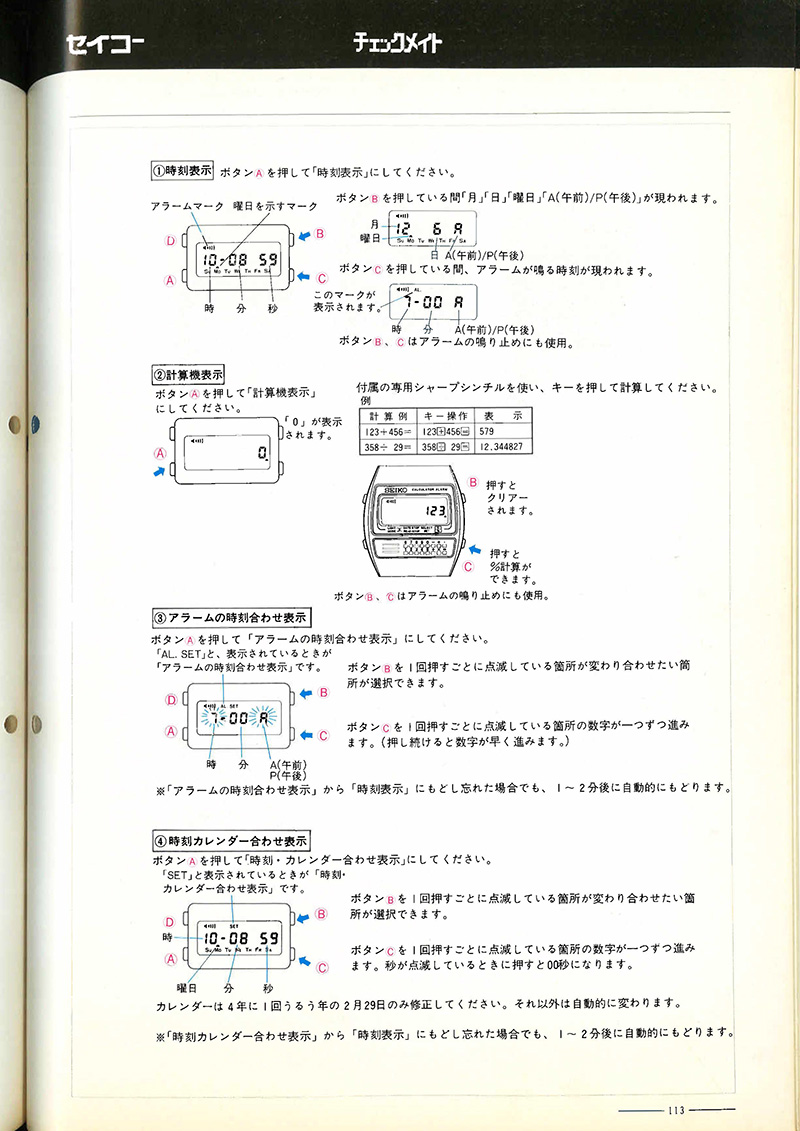 セイコー
チェックメイト
①時刻表示 ボタンAを押して「時刻表示」にしてください。
ボタンBを押している間「月」「日」「曜日」「A(午前)/P(午後)」が現われます。
アラームマーク 曜日を示すマーク
D
B
A
C
10-08 59
Su Mo Tu We Th Fr Sa
時 分 秒
月
曜日
12 6 A
Su Mo Tu We Th Fr Sa
日 A(午前)/P(午後)
ボタンCを押している間、アラームが鳴る時刻が現われます。
このマークが
表示されます。
AL.
7-00 A
時 分 A(午前)/P(午後)
ボタンB、Cはアラームの鳴り止めにも使用。
②計算機表示
ボタンAを押して「計算機表示」
にしてください。
「0」が表示
されます。
A
0.
付属の専用シャープシンチルを使い、キーを押して計算してください。
例
計算例 キー操作 表 示
123+456= 123+456= 579
358÷ 29= 358÷ 29= 12.344827
SEIKO CALCULATOR ALARM
123.
B 押すと
クリアー
されます。
C 押すと
%計算が
できます。
ボタンB、Cはアラームの鳴り止めにも使用。
③アラームの時刻合わせ表示
ボタンAを押して「アラームの時刻合わせ表示」にしてください。
「AL. SET」と、表示されているときが
「アラームの時刻合わせ表示」です。
D
B
A
C
AL SET
7-00 A
時 分 A(午前)
P(午後)
ボタンBを1回押すごとに点減している箇所が変わり合わせたい箇
所が選択できます。
ボタンCを1回押すごとに点減している箇所の数字が一つずつ進み
ます。(押し続けると数字が早く進みます。)
※「アラームの時刻合わせ表示」から「時刻表示」にもどし忘れた場合でも、1〜2分後に自動的にもどります。
④時刻カレンダー合わせ表示
ボタンAを押して「時刻・カレンダー合わせ表示」にしてください。
「SET」と表示されているときが「時刻・
カレンダー合わせ表示」です。
D
B
時
A
C
SET
10-08 59
Su Mo Tu We Th Fr Sa
曜日 分 秒
ボタンBを1回押すごとに点減している箇所が変わり合わせたい箇
所が選択できます。
ボタンCを1回押すごとに点減している箇所の数字が一つずつ進み
ます。秒が点減しているときに押すと00秒になります。
カレンダーは4年に1回うるう年の2月29日のみ修正してください。それ以外は自動的に変わります。
※「時刻カレンダー合わせ表示」から「時刻表示」にもどし忘れた場合でも、1〜2分後に自動的にもどります。
113